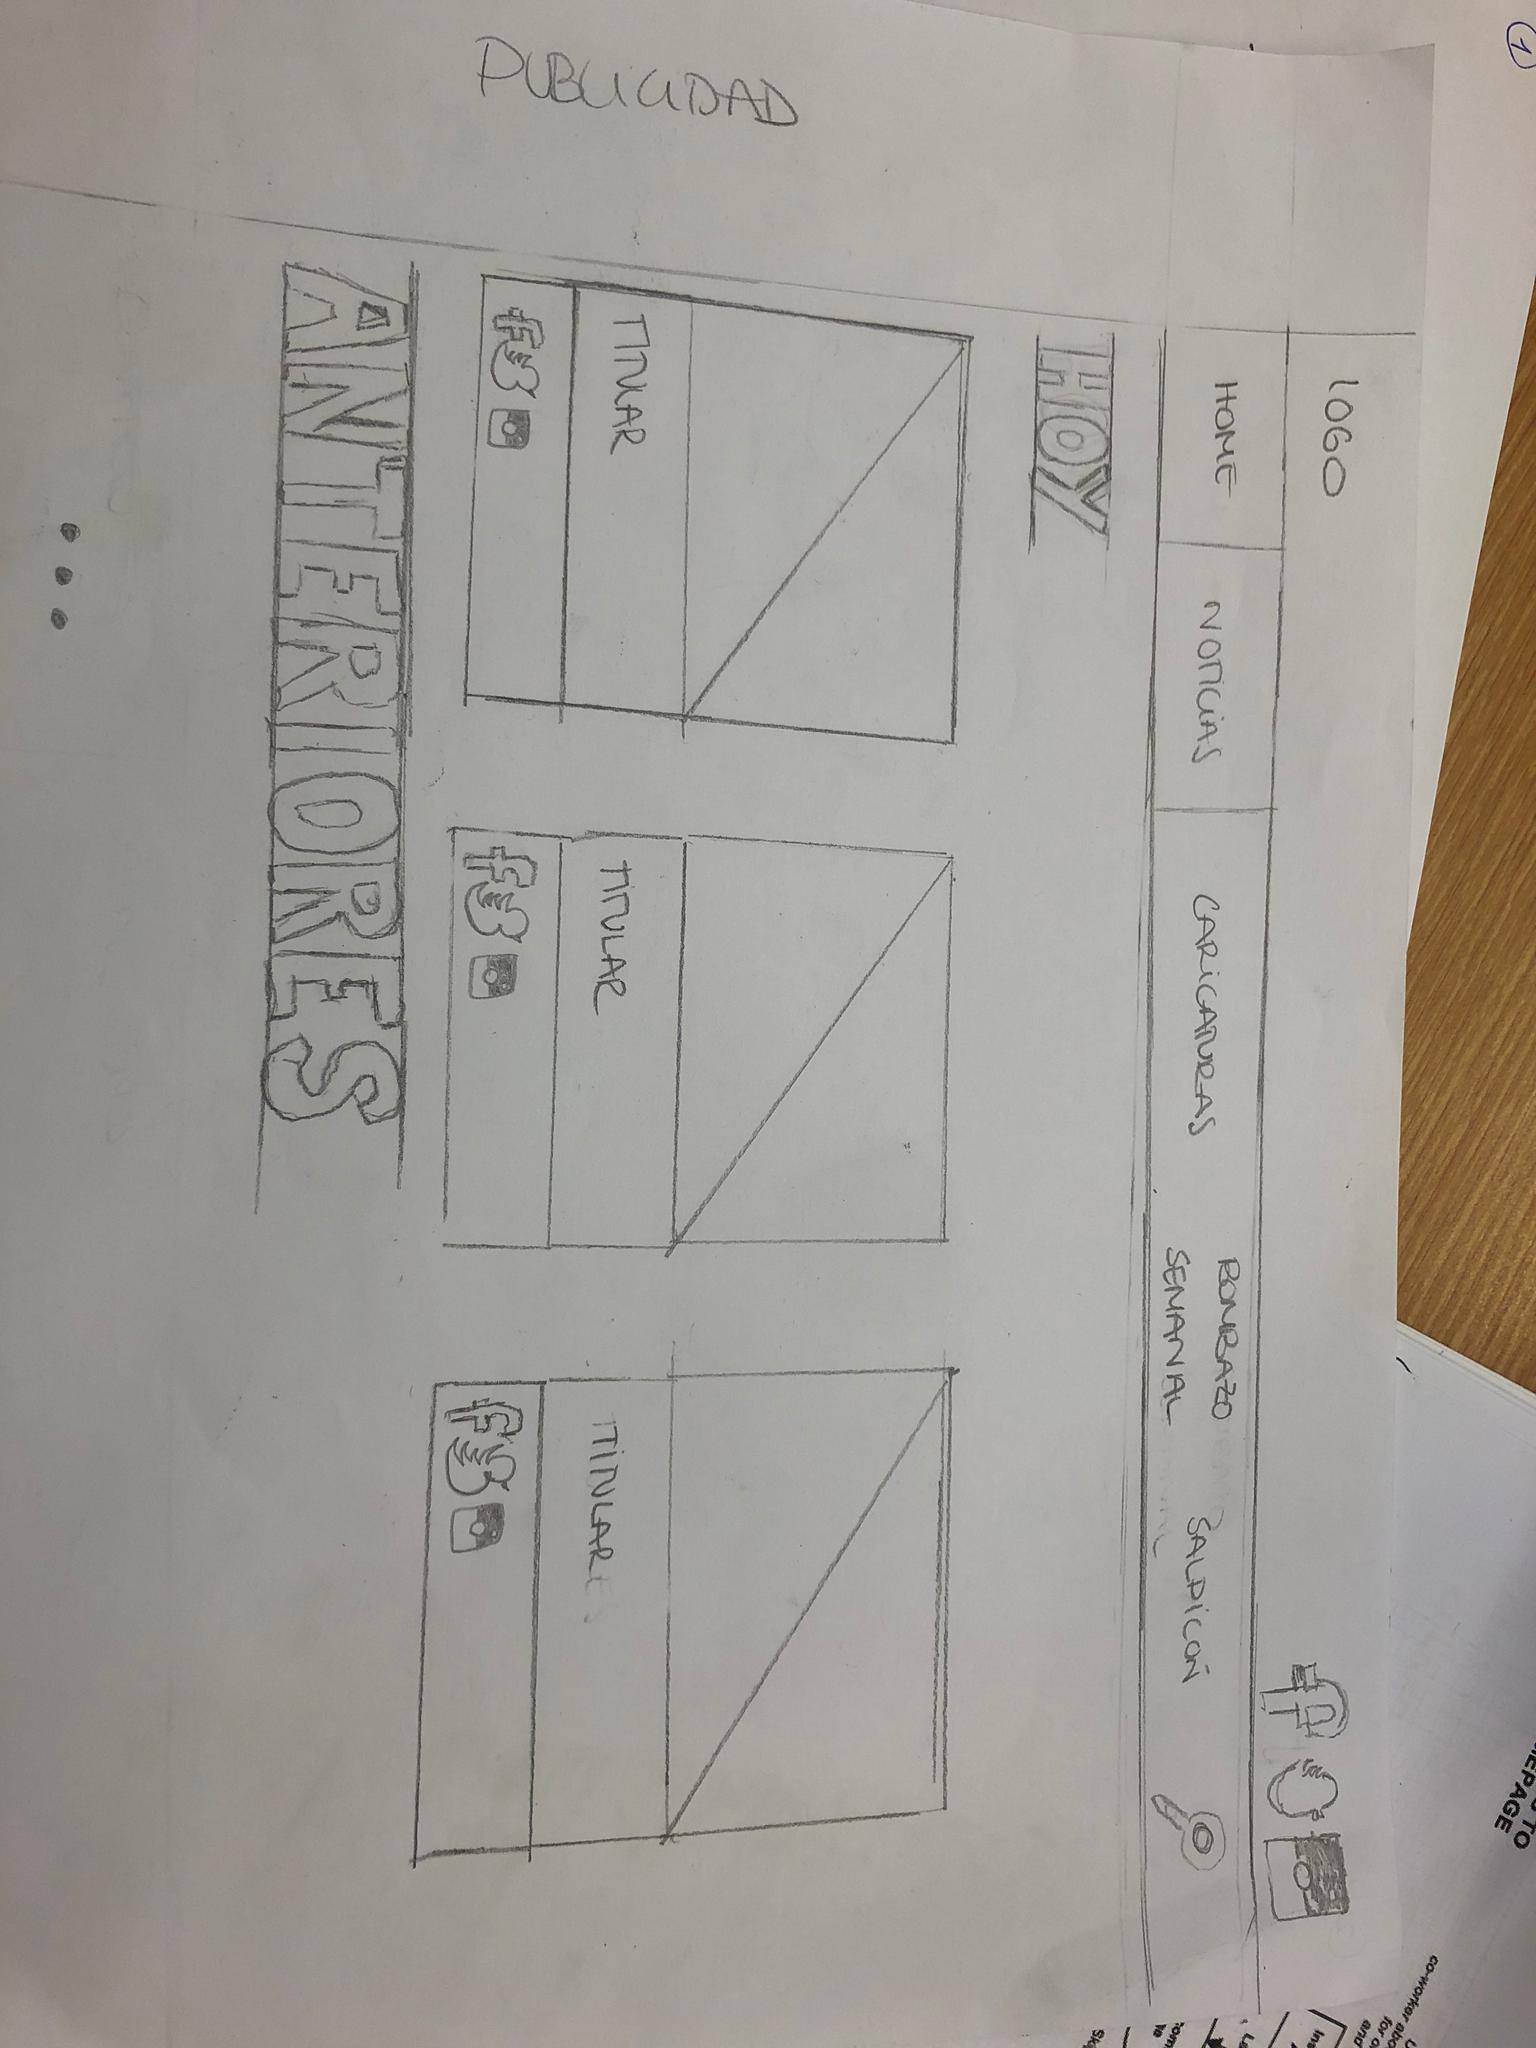 1
TO
MEPAGE
co-worker abo
for o
and
LOGO
HOME
NOTICIAS
CARICATURAS
BOMBAZO
SEMANAL
SALPICON
HOY
PUBLICIDAD
TITULAR
TITULAR
TITULAR
ANTERIORES
...